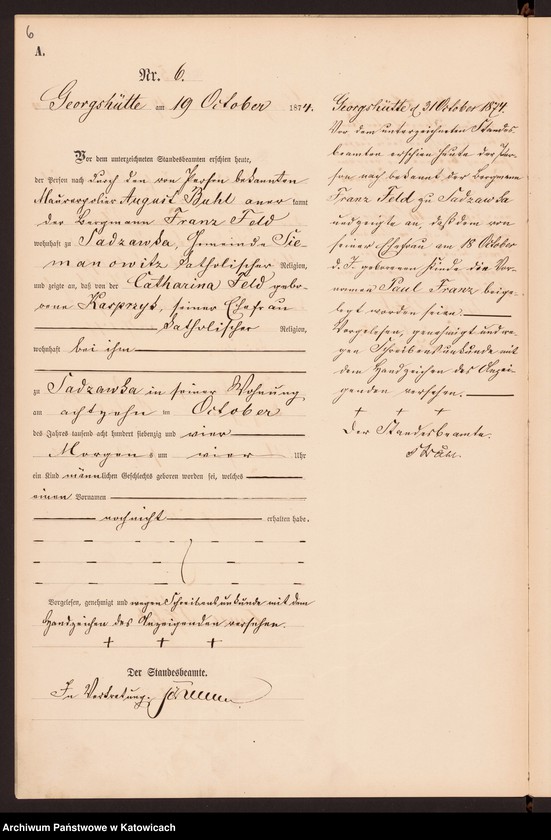 6
A.
Nr. 6.
Georgshütte am 19 October 1874.
Vor dem unterzeichneten Standesbeamten erschien heute,
der Person nach durch den von Person bekannten
Maurerpolier August Buhl aner kannt
der Bergmann Franz Feld
wohnhaft zu Sadzawka, Gemeinde Sie-
manowitz katholischer Religion,
und zeigte an, daß von der Catharina Feld gebo-
rene Kasprzyk, seiner Ehefrau
katholischer Religion,
wohnhaft bei ihm
zu Sadzawka in seiner Wohnung
am achtzehn ten October
des Jahres tausend acht hundert siebenzig und vier
Morgens um vier Uhr
ein Kind männlichen Geschlechts geboren worden sei, welches
einen Vornamen
noch nicht erhalten habe.
Vorgelesen, genehmigt und wegen Schreibensunkunde mit dem
Handzeichen des Anzeigenden versehen.
+ + +
Der Standesbeamte.
In Vertretung.
Georgshütte d 31 October 1874
Vor dem unterzeichneten Standes
beamten erschien heute der Per-
son nach bekannt der Bergmann
Franz Feld zu Sadzawka
und zeigte an, daß dem von
seiner Ehefrau am 18 October
d. J. geborenen Kinde die Vor-
namen Paul Franz beige-
legt worden seien.
Vorgelesen, genehmigt und we-
gen Schreibensunkunde mit
dem Handzeichen des Anzei-
genden versehen.
+ + +
Der Standesbeamte.
Archiwum Państwowe w Katowicach